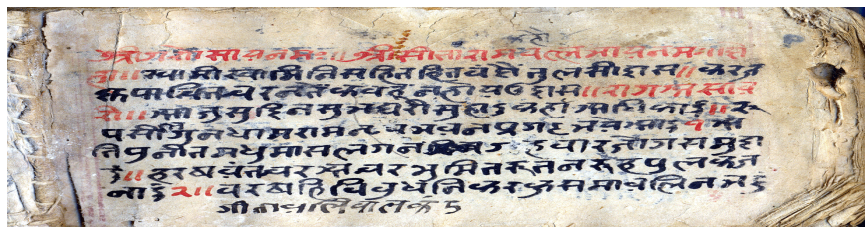 श्रीगणेशायनमः॥ श्रीसीतारामवल्लभायनमः॥दोहा
॥स्यामीस्वामिनिसहितहितवंदौंतुलसीदास॥करत
कृपाचितवत रागअसाव
री॥आजुसुदिनसुभघरीसुहाई॥रू
पसीलगुनधामरामनृपभवनप्रगटभयेआई१अ
तिपुनीतमधुमासलगन ग्रहवारजोगसमुदा
ई॥हरषवंतचरअचरभुमितरूतनरूहपुलकज
नाई२॥वरषहिविवुधनिकरकुसमावलिनभदुं
गीतावलिवालकं५